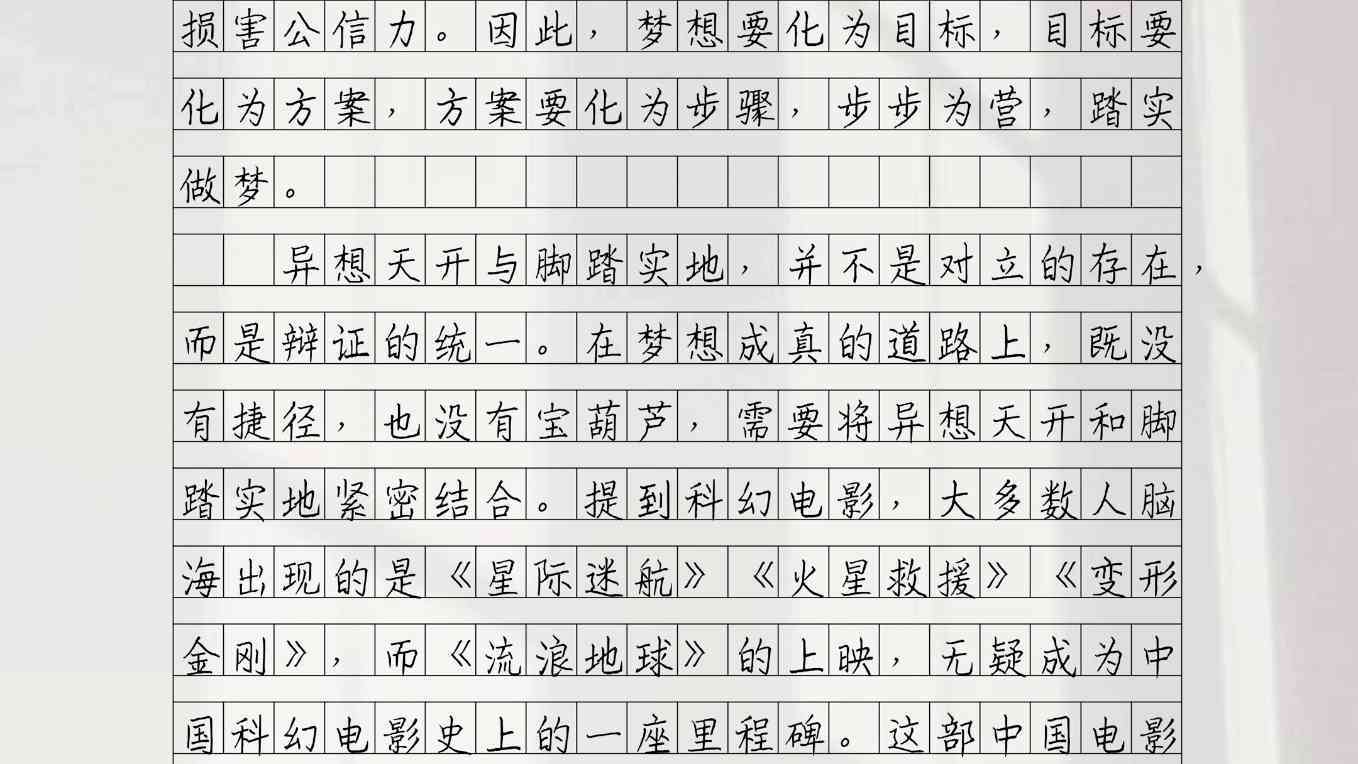 损害公信力。因此，梦想要化为目标，目标要
化为方案，方案要化为步骤，步步为营，踏实
做梦。
异想天开与脚踏实地，并不是对立的存在，
而是辩证的统一。在梦想成真的道路上，既没
有捷径，也没有宝葫芦，需要将异想天开和脚
踏实地紧密结合。提到科幻电影，大多数人脑
海出现的是《星际迷航》《火星救援》《变形
金刚》，而《流浪地球》的上映，无疑成为中
国科幻电影史上的一座里程碑。这部中国电影